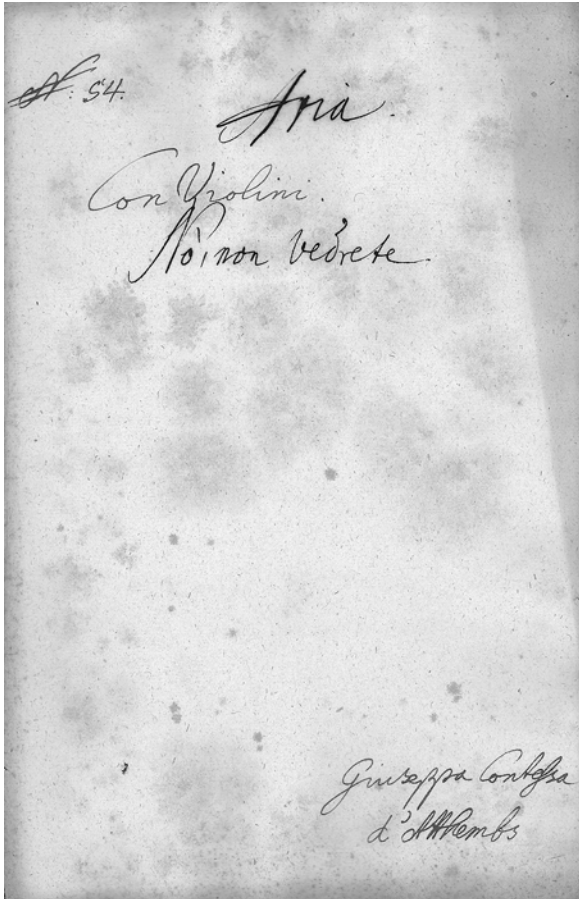 N: 54.
Aria.
Con Violini.
Nò, non vedrete.
Giuseppa Contessa
d'Atthembs